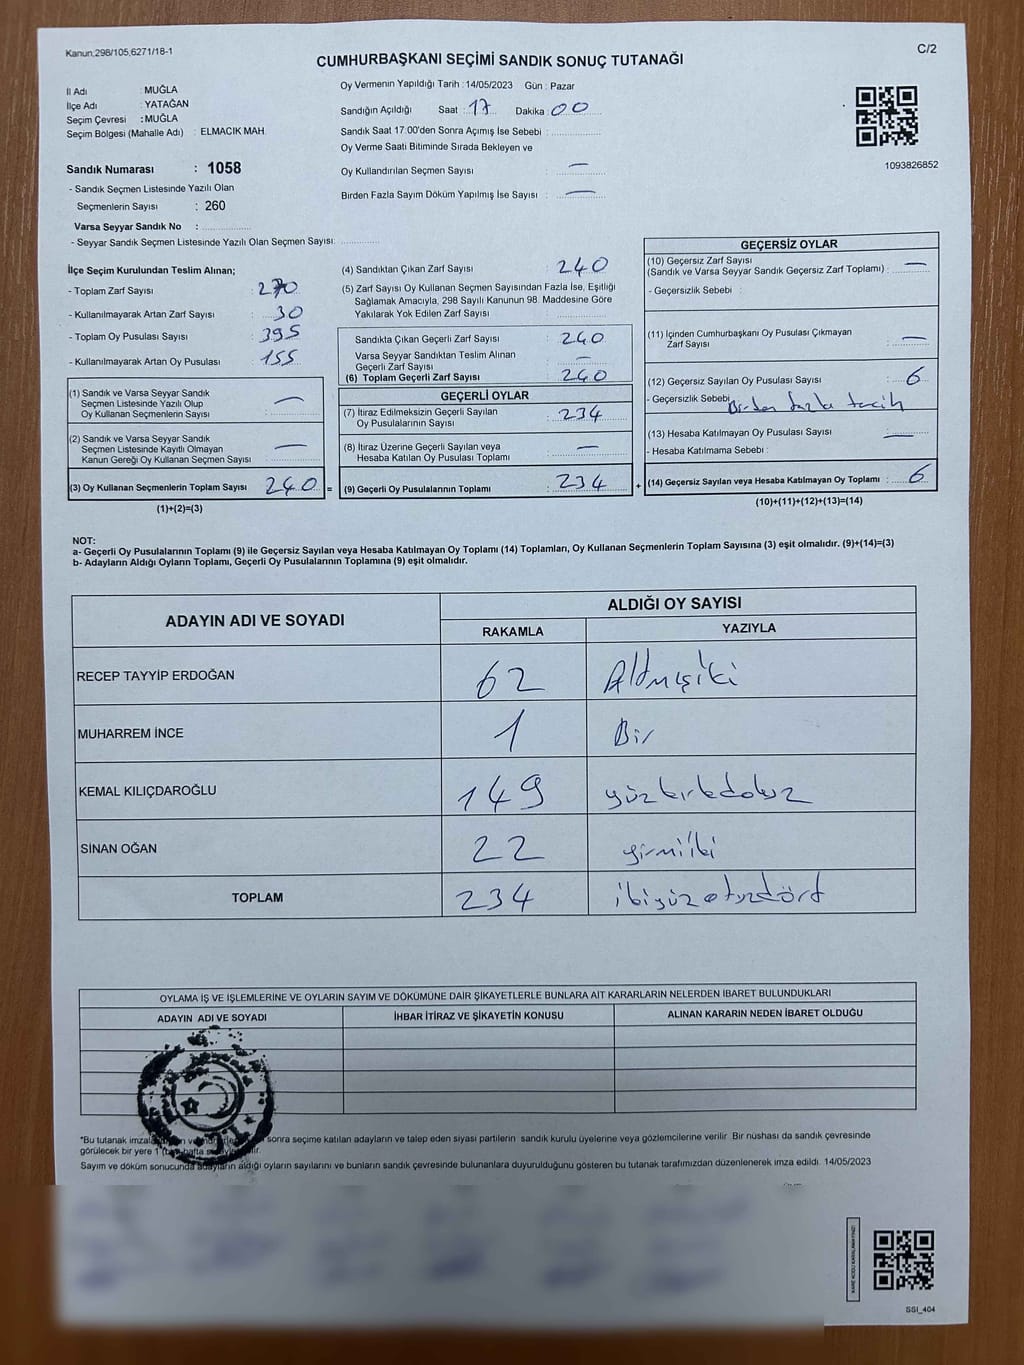 Kanun,298/105,6271/18-1
C/2
CUMHURBAŞKANI SEÇİMİ SANDIK SONUÇ TUTANAĞI
İl Adı : MUĞLA
İlçe Adı : YATAĞAN
Seçim Çevresi : MUĞLA
Seçim Bölgesi (Mahalle Adı) : ELMACIK MAH.
Sandık Numarası : 1058
- Sandık Seçmen Listesinde Yazılı Olan
Seçmenlerin Sayısı : 260
Varsa Seyyar Sandık No :
- Seyyar Sandık Seçmen Listesinde Yazılı Olan Seçmen Sayısı:
Oy Vermenin Yapıldığı Tarih : 14/05/2023 Gün : Pazar
Sandığın Açıldığı Saat : 17 Dakika : 00
Sandık Saat 17:00'den Sonra Açımış İse Sebebi :
Oy Verme Saati Bitiminde Sırada Bekleyen ve
Oy Kullandırılan Seçmen Sayısı : —
Birden Fazla Sayım Döküm Yapılmış İse Sayısı : —
1093826852
İlçe Seçim Kurulundan Teslim Alınan;
- Toplam Zarf Sayısı : 270
- Kullanılmayarak Artan Zarf Sayısı : 30
- Toplam Oy Pusulası Sayısı : 395
- Kullanılmayarak Artan Oy Pusulası : 155
(1) Sandık ve Varsa Seyyar Sandık
Seçmen Listesinde Yazılı Olup
Oy Kullanan Seçmenlerin Sayısı : —
(2) Sandık ve Varsa Seyyar Sandık
Seçmen Listesinde Kayıtlı Olmayan
Kanun Gereği Oy Kullanan Seçmen Sayısı : —
(3) Oy Kullanan Seçmenlerin Toplam Sayısı : 240 =
(1)+(2)=(3)
(4) Sandıktan Çıkan Zarf Sayısı : 240
(5) Zarf Sayısı Oy Kullanan Seçmen Sayısından Fazla İse, Eşitliği
Sağlamak Amacıyla, 298 Sayılı Kanunun 98. Maddesine Göre
Yakılarak Yok Edilen Zarf Sayısı :
Sandıkta Çıkan Geçerli Zarf Sayısı : 240
Varsa Seyyar Sandıktan Teslim Alınan
Geçerli Zarf Sayısı : —
(6) Toplam Geçerli Zarf Sayısı : 240
GEÇERLİ OYLAR
(7) İtiraz Edilmeksizin Geçerli Sayılan
Oy Pusulalarının Sayısı : 234
(8) İtiraz Üzerine Geçerli Sayılan veya
Hesaba Katılan Oy Pusulası Toplamı : —
(9) Geçerli Oy Pusulalarının Toplamı : 234 +
GEÇERSİZ OYLAR
(10) Geçersiz Zarf Sayısı
(Sandık ve Varsa Seyyar Sandık Geçersiz Zarf Toplamı) : —
- Geçersizlik Sebebi :
(11) İçinden Cumhurbaşkanı Oy Pusulası Çıkmayan
Zarf Sayısı : —
(12) Geçersiz Sayılan Oy Pusulası Sayısı : 6
- Geçersizlik Sebebi : Birden fazla tercih
(13) Hesaba Katılmayan Oy Pusulası Sayısı : —
- Hesaba Katılmama Sebebi :
(14) Geçersiz Sayılan veya Hesaba Katılmayan Oy Toplamı : 6
(10)+(11)+(12)+(13)=(14)
NOT:
a- Geçerli Oy Pusulalarının Toplamı (9) ile Geçersiz Sayılan veya Hesaba Katılmayan Oy Toplamı (14) Toplamları, Oy Kullanan Seçmenlerin Toplam Sayısına (3) eşit olmalıdır. (9)+(14)=(3)
b- Adayların Aldığı Oyların Toplamı, Geçerli Oy Pusulalarının Toplamına (9) eşit olmalıdır.
ADAYIN ADI VE SOYADI
ALDIĞI OY SAYISI
RAKAMLA YAZIYLA
RECEP TAYYİP ERDOĞAN 62 Altmışiki
MUHARREM İNCE 1 Bir
KEMAL KILIÇDAROĞLU 149 yüzkırkdokuz
SİNAN OĞAN 22 yirmiiki
TOPLAM 234 ikiyüzotuzdört
OYLAMA İŞ VE İŞLEMLERİNE VE OYLARIN SAYIM VE DÖKÜMÜNE DAİR ŞİKAYETLERLE BUNLARA AİT KARARLARIN NELERDEN İBARET BULUNDUKLARI
ADAYIN ADI VE SOYADI İHBAR İTİRAZ VE ŞİKAYETİN KONUSU ALINAN KARARIN NEDEN İBARET OLDUĞU
*Bu tutanak sonra seçime katılan adayların ve talep eden siyasi partilerin sandık kurulu üyelerine veya gözlemcilerine verilir. Bir nüshası da sandık çevresinde
görülecek bir yere 1
Sayım ve döküm sonucunda adayların aldığı oyların sayılarını ve bunların sandık çevresinde bulunanlara duyurulduğunu gösteren bu tutanak tarafımızdan düzenlenerek imza edildi. 14/05/2023
SSI_404